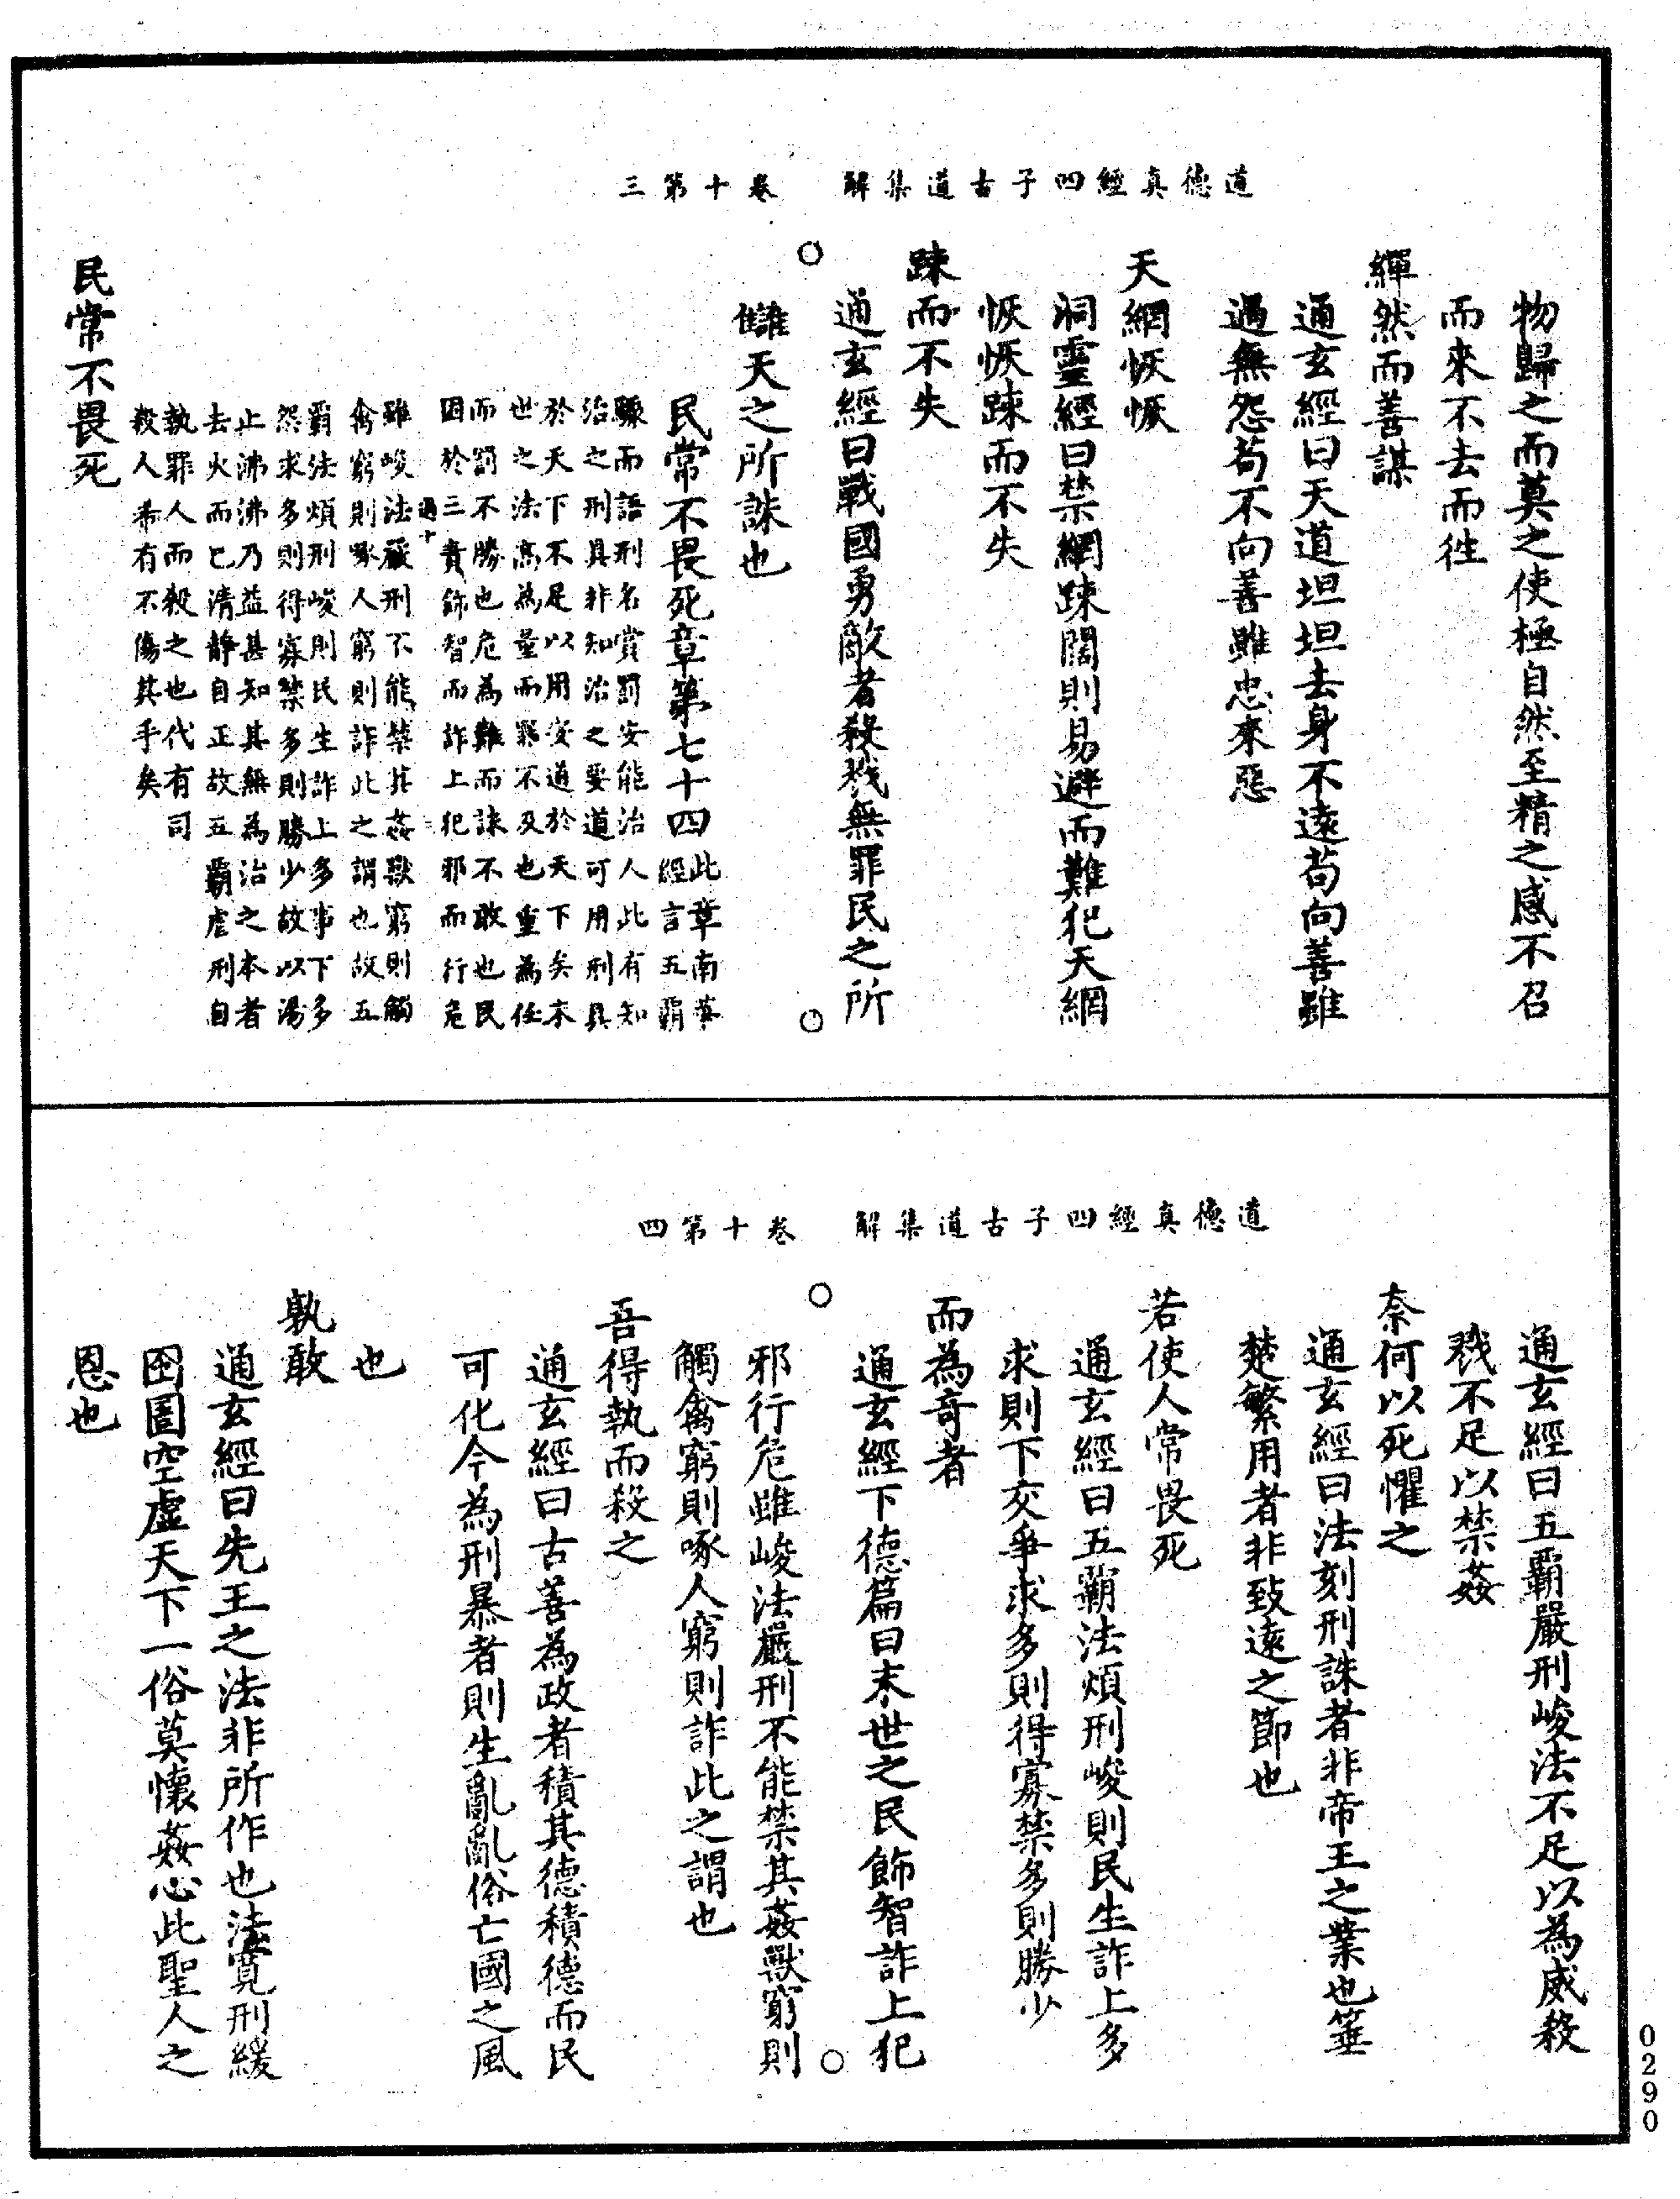 道德真經四子古道集解　卷十第三
物歸之而莫之使極自然至精之感不召
而來不去而徃
繟然而善謀
通玄經曰天道坦坦去身不遠苟向善雖
過無怨苟不向善雖忠來惡
天網恢恢
洞靈經曰禁網踈闊則易避而難犯天網
恢恢踈而不失
踈而不失
通玄經曰戰國勇敵者殺戮無罪民之所
讎天之所誅也
民常不畏死章第七十四此章南華
經言五覇
驟而語刑名賞罰安能治人此有知
治之刑具非知治之要道可用刑具
於天下不足以用安道於天下矣末
世之法高為量而罪不及也重為任
而罰不勝也危為難而誅不敢也民
困於三責飾智而詐上犯邪而行危
雖峻法嚴刑不能禁其姦獸窮則觸
禽窮則啄人窮則詐此之謂也故五
覇法煩刑峻則民生詐上多事下多
怨求多則得寡禁多則勝少故以湯
止沸沸乃益甚知其無為治之本者
去火而已清靜自正故五覇虐刑自
執罪人而殺之也代有司
殺人希有不傷其手矣
民常不畏死
道德真經四子古道集解　卷十第四
通玄經曰五覇嚴刑峻法不足以為威殺
戮不足以禁姦
奈何以死懼之
通玄經曰法刻刑誅者非帝王之業也箠
楚繁用者非致遠之節也
若使人常畏死
通玄經曰五覇法煩刑峻則民生詐上多
求則下交爭求多則得寡禁多則勝少
而為奇者
通玄經下德篇曰末世之民飾智詐上犯
邪行危雖峻法嚴刑不能禁其姦獸窮則
觸禽窮則啄人窮則詐此之謂也
吾得執而殺之
通玄經曰古善為政者積其德積德而民
可化今為刑暴者則生亂亂俗亡國之風
也
孰敢
通玄經曰先王之法非所作也法寬刑緩
囹圄空虛天下一俗莫懷姦心此聖人之
恩也
0290